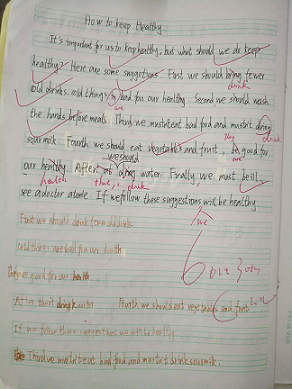 How to keep Healthy
It's important for us to keep healthy, but what should we do keep
healthy? Here are some suggestions. First we should bring fewer
drink
cold drinks. cold things is bad for our healthy. Second we should wash
are
the hands before meals. Third we mustn't eat bad food and mustn't dring
drink
sour milk. Fourth we should eat vegetables and fruit. be good for
they
are
our healthy. After we should dring water. Finally we must be ill
health
that, drink
see a doctor at once. If we follow these suggestions will be healthy.
we
First we should drink fewer cold drinks
Cold things are bad for our health
They are good for our health
After that drink water Fourth we should eat vegetables and fruit
If we follow these suggestions we will be healthy
Third we mustn't eat bad food and mustn't drink sour milk.